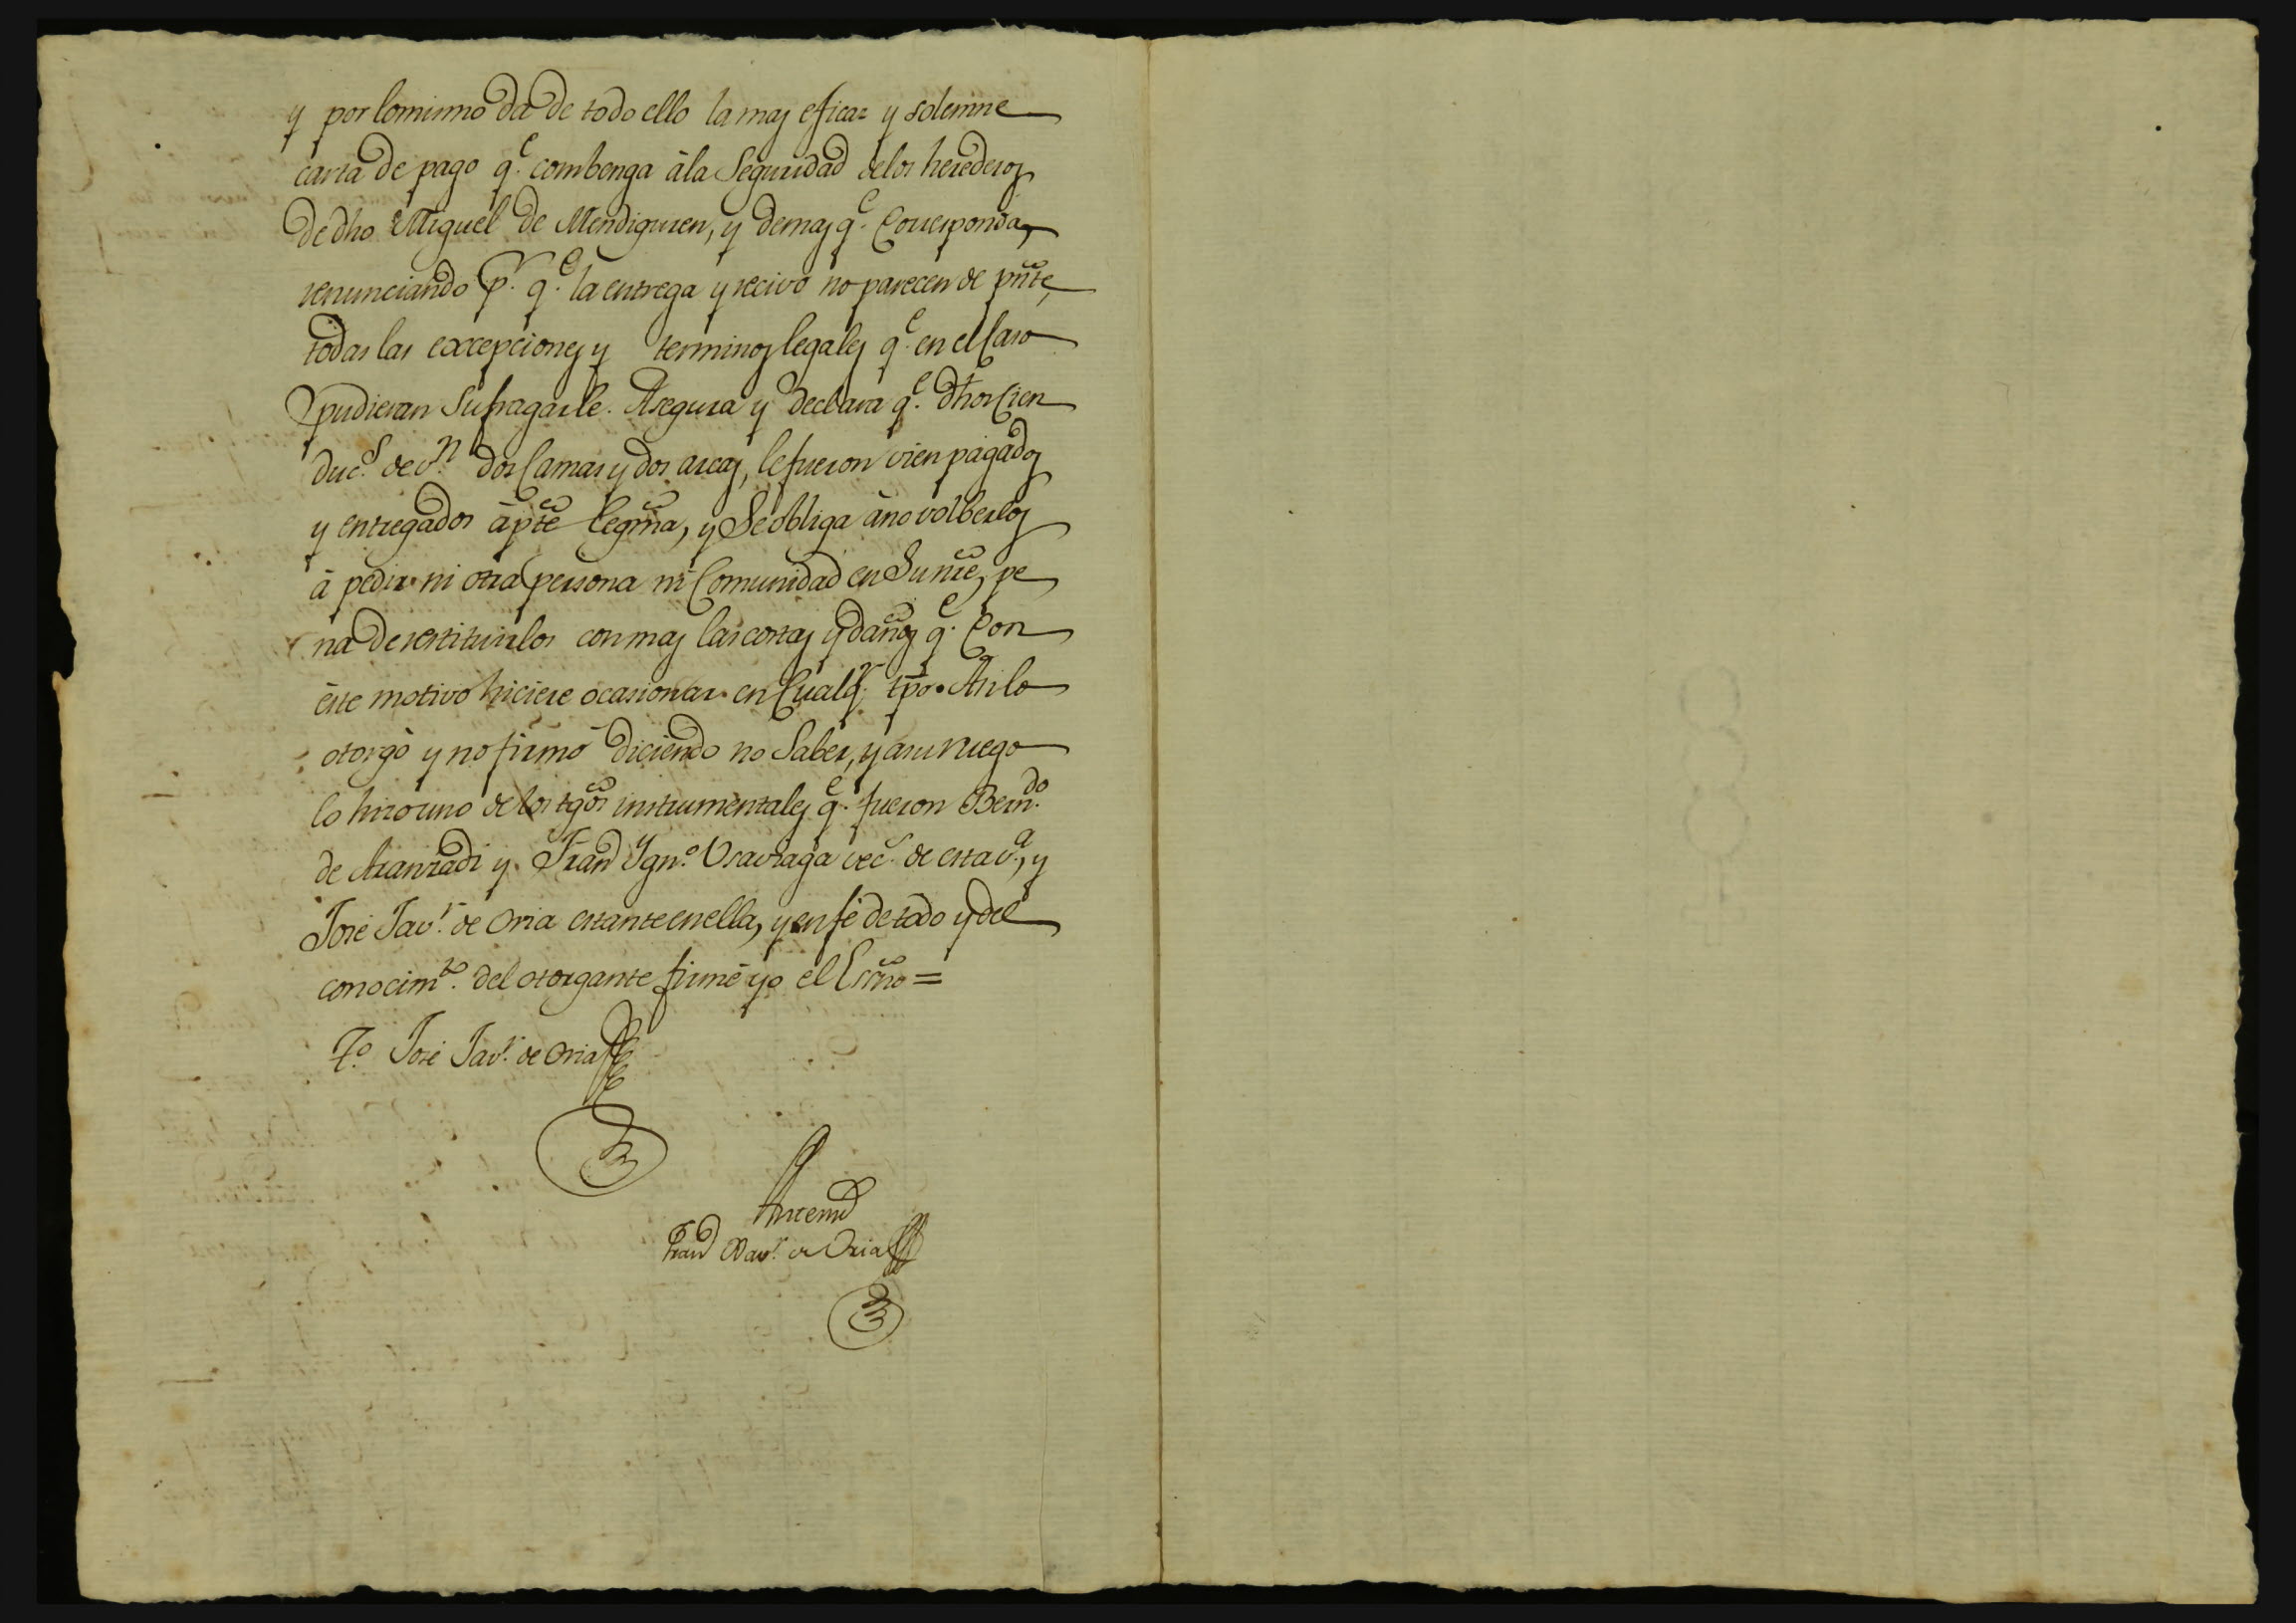 y por lo mismo da de todo ello la mas eficaz y solemne
carta de pago q.e combenga à la Seguridad de los herederos
de dho Miguel de Mendiguren, y demas q.e Corresponda,
renunciando p.r q.e la entrega y recivo no parecen de pñte,
todas las excepciones y terminos legales q.e en el Caso
pudieran Sufragarle. Asegura y declara q.e dhos Cien
duc.s de v.n dos Camas y dos arcas, le fueron vien pagados
y entregados à pte legma, y Se obliga à no volberlos
à pedir ni otra persona ni Comunidad en Su nre, pe
na de restituirlos con mas las costas y daños q.e Con
este motivo hiciere ocasionar en Cualq.r tpo. Asi lo
otorgó y no firmó diciendo no Saber, y a su ruego
lo hizo uno de los tgos instrumentales q.e fueron Bern.do
de Aranzadi y Fran.co Ygn.o Vsavraga vec.s de esta v.a, y
José Jav.r de Oria estante en ella, y en fé de todo y del
conocim.to del otorgante firmé yo el Esño =
T.o José Jav.r de Oria
Antemi
Fran.co Xav.r de Oria